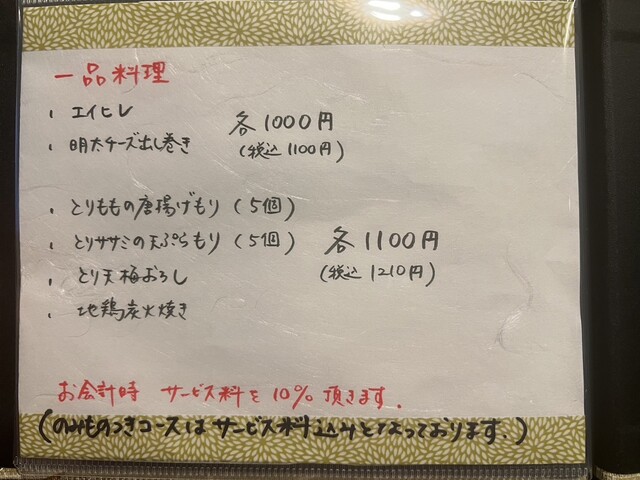 一品料理
、エイヒレ
、明太チーズ出し巻き
各1000円
(税込1100円)
、とりももの唐揚げもり(5個)
、とりササミの天ぷらもり(5個)
、とり天梅おろし
、地鶏炭火焼き
各1100円
(税込1210円)
お会計時 サービス料を10%頂きます.
(のみものつきコースはサービス料込みとなっております.)